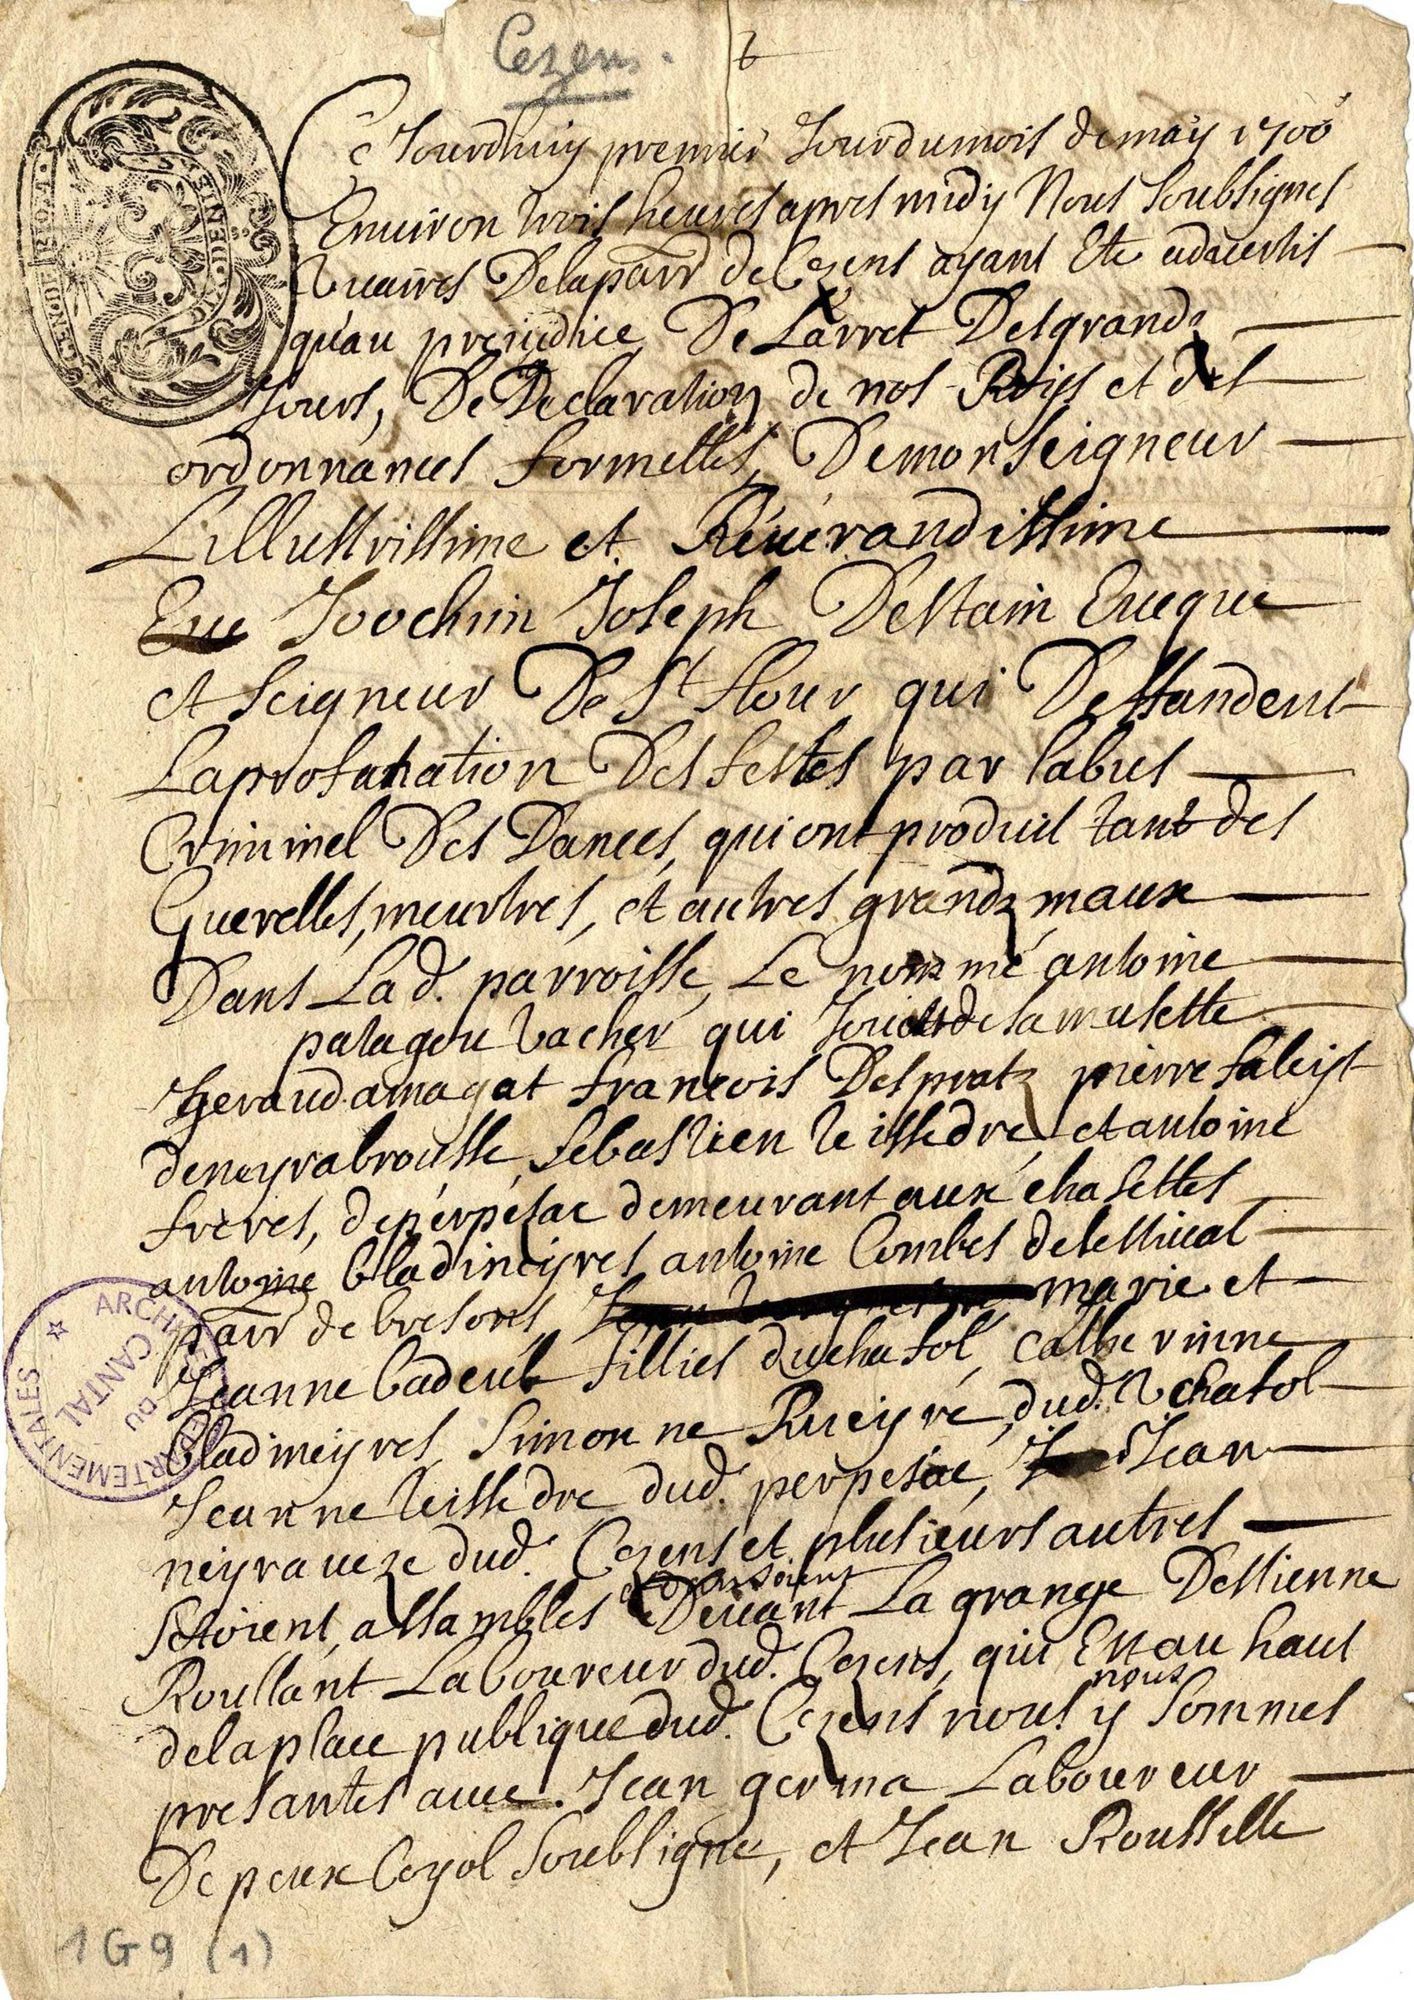 Cezens.
Ce Jourdhuy premier Jour du mois de may 1700
Environ trois heures apres midy Nous soubsignes
vicaires De la parr de Cezens ayant Ete advertis
qu'au prejudice De Larret Des grands
Jours, De Declaration de nos Roys et des
ordonnances formelles, De monseigneur
Lillustrissime et Révérandissime
Joochim Joseph Destain Eveque
et seigneur De St flour qui Deffandent
La profanation Des festes par labus
Criminel Des Dances, qui ont produit tant des
Querelles, meurtres, et autres grands maux
Dans La d. parroisse, Le nommé antoine
patageu vacher qui de la musette
geraud amagat francois Desprats pierre
de neyrabrousse, sebastien teissedre, et antoine
freres, de perpesac demeurant aux chasettes
antoine bladineyres antoine Combes de lestival
parr de bresons marie et
Jeanne fillies du chasol, catherinne
bladineyres, simonne Rueyre, dud. chasol
Jeanne teissedre dud. perpesac, Jean
neyraveze dud. Cezens et plusieurs autres
setoient, assambles et dansoient Devant La grange Destienne
Roullant Laboureur dud. Cezens, qui Est au haut
de la place publique dud. Cezens nous nous y sommes
presantes avec. Jean germa Laboureur
De peux Coyol soubsigne, et Jean Rousselle
1G9 (1)
GENO.DE.RIOM
ARCHIVES DÉPARTEMENTALES
DU CANTAL